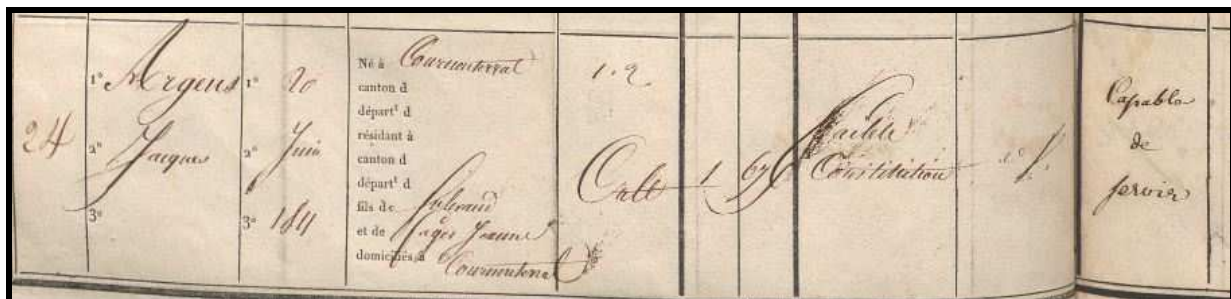 24
1° Argens
2° Jacques
3°
1° 20
2° Juin
3° 1811
Né à Cournonterral
canton d
départ^t d
résidant à
canton d
départ^t d
fils de
et de Jeanne
domiciliés à Cournonterral
1. 2.
Cult
1 676
Faible
Constitution
Capable
de
servir